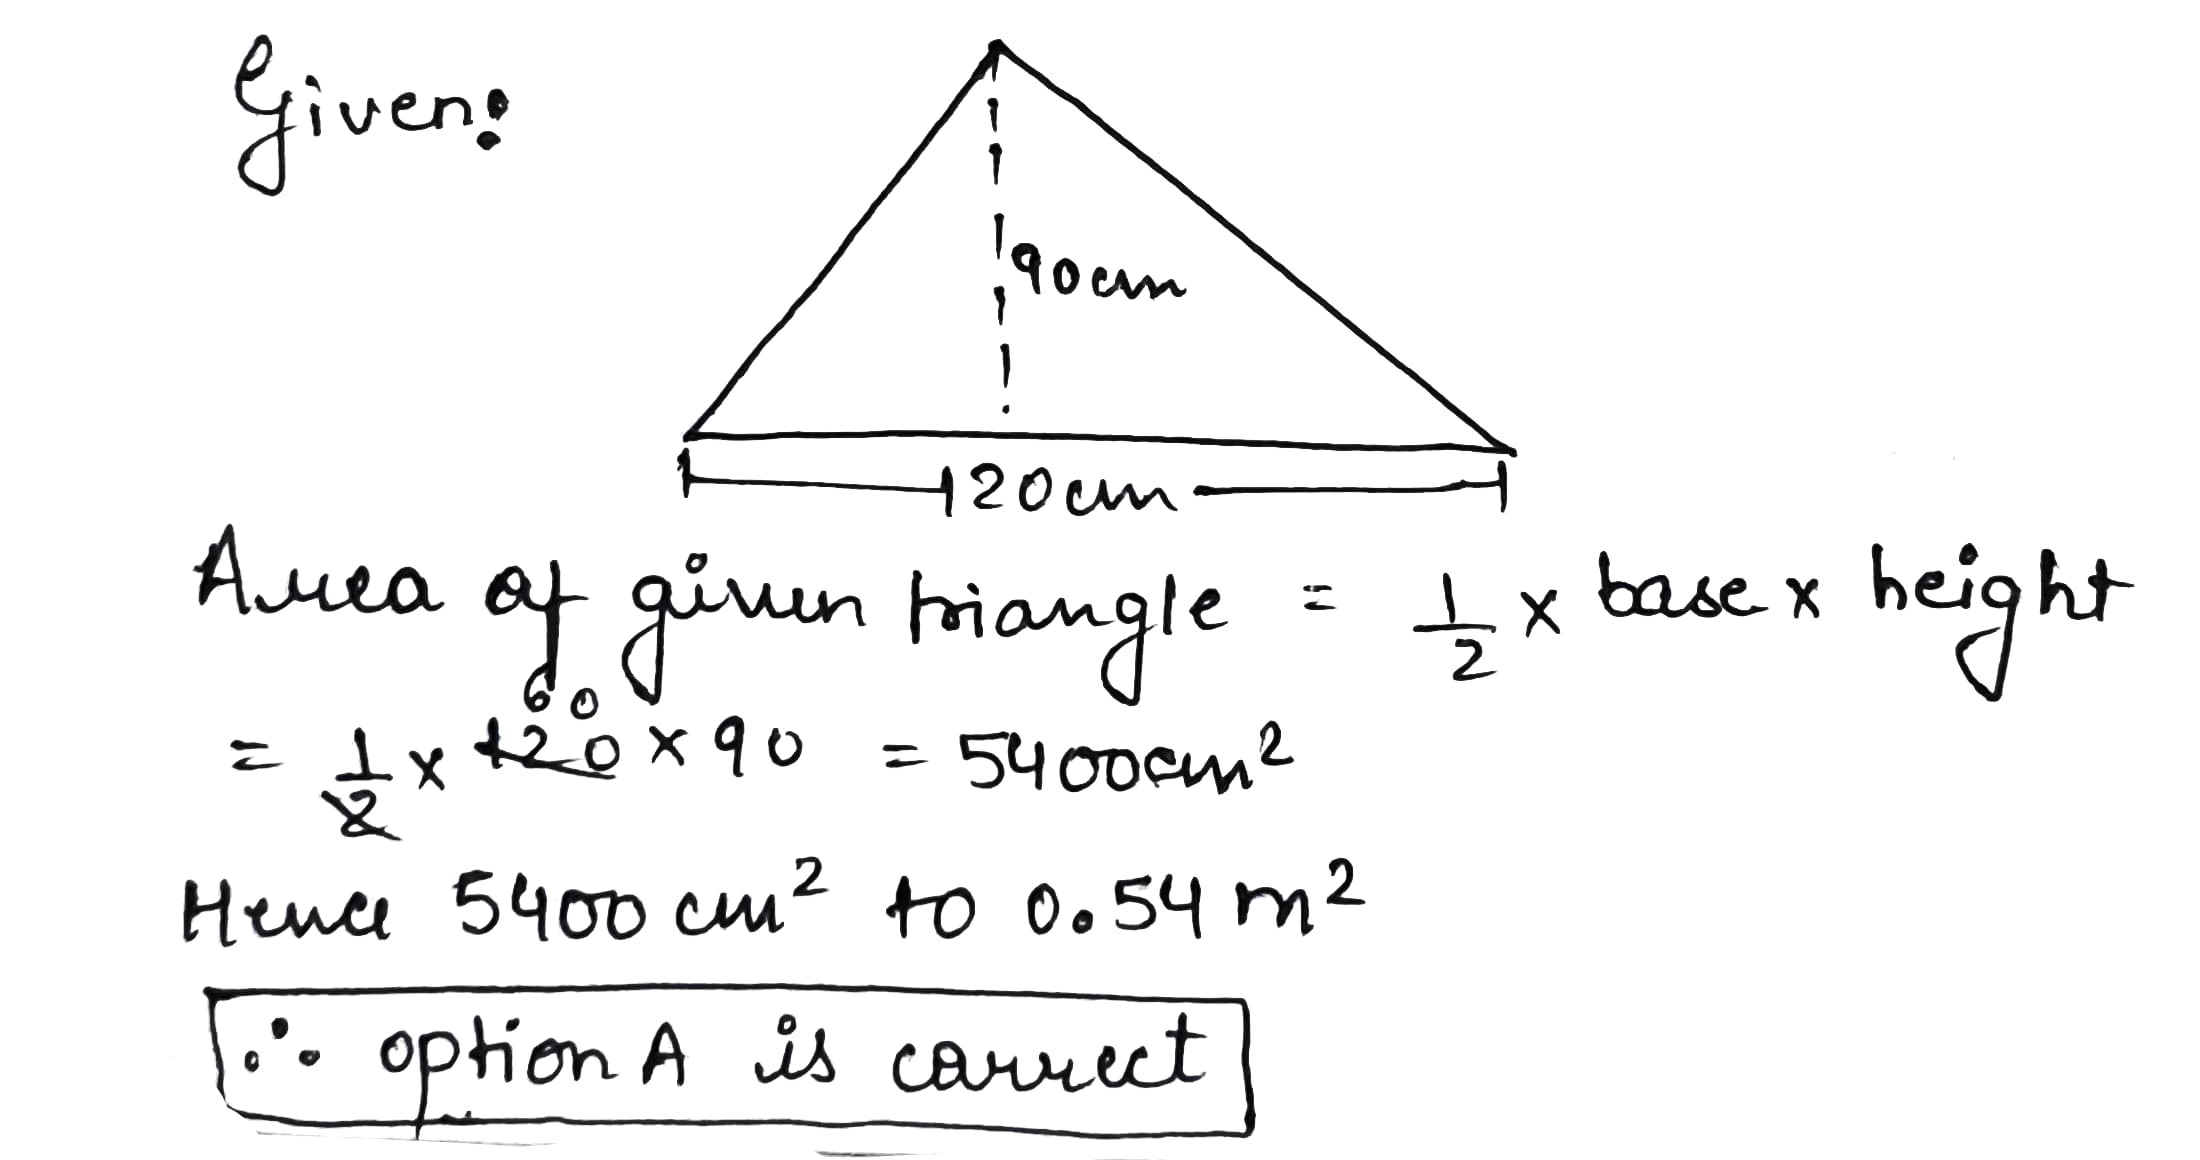 Given:
90cm
120cm
Area of given triangle = 1/2 x base x height
= 1/2 x 120 60 x 90 = 5400cm²
Hence 5400 cm² to 0.54 m²
∴ option A is correct